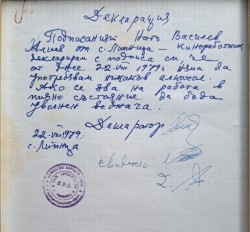 Декларация
Подписаният Нато Василев
Алиев от с. Липница – киноработник
декларирам с подписа си, че
от днес 22.VIII 1979г. няма да
употребявам никакъв алкохол.
Ако се ява на работа в
пияно състояние да бъда
уволнен веднага.
Декларатор:
22.VIII 1979г.
с. Липница
Свидетели: